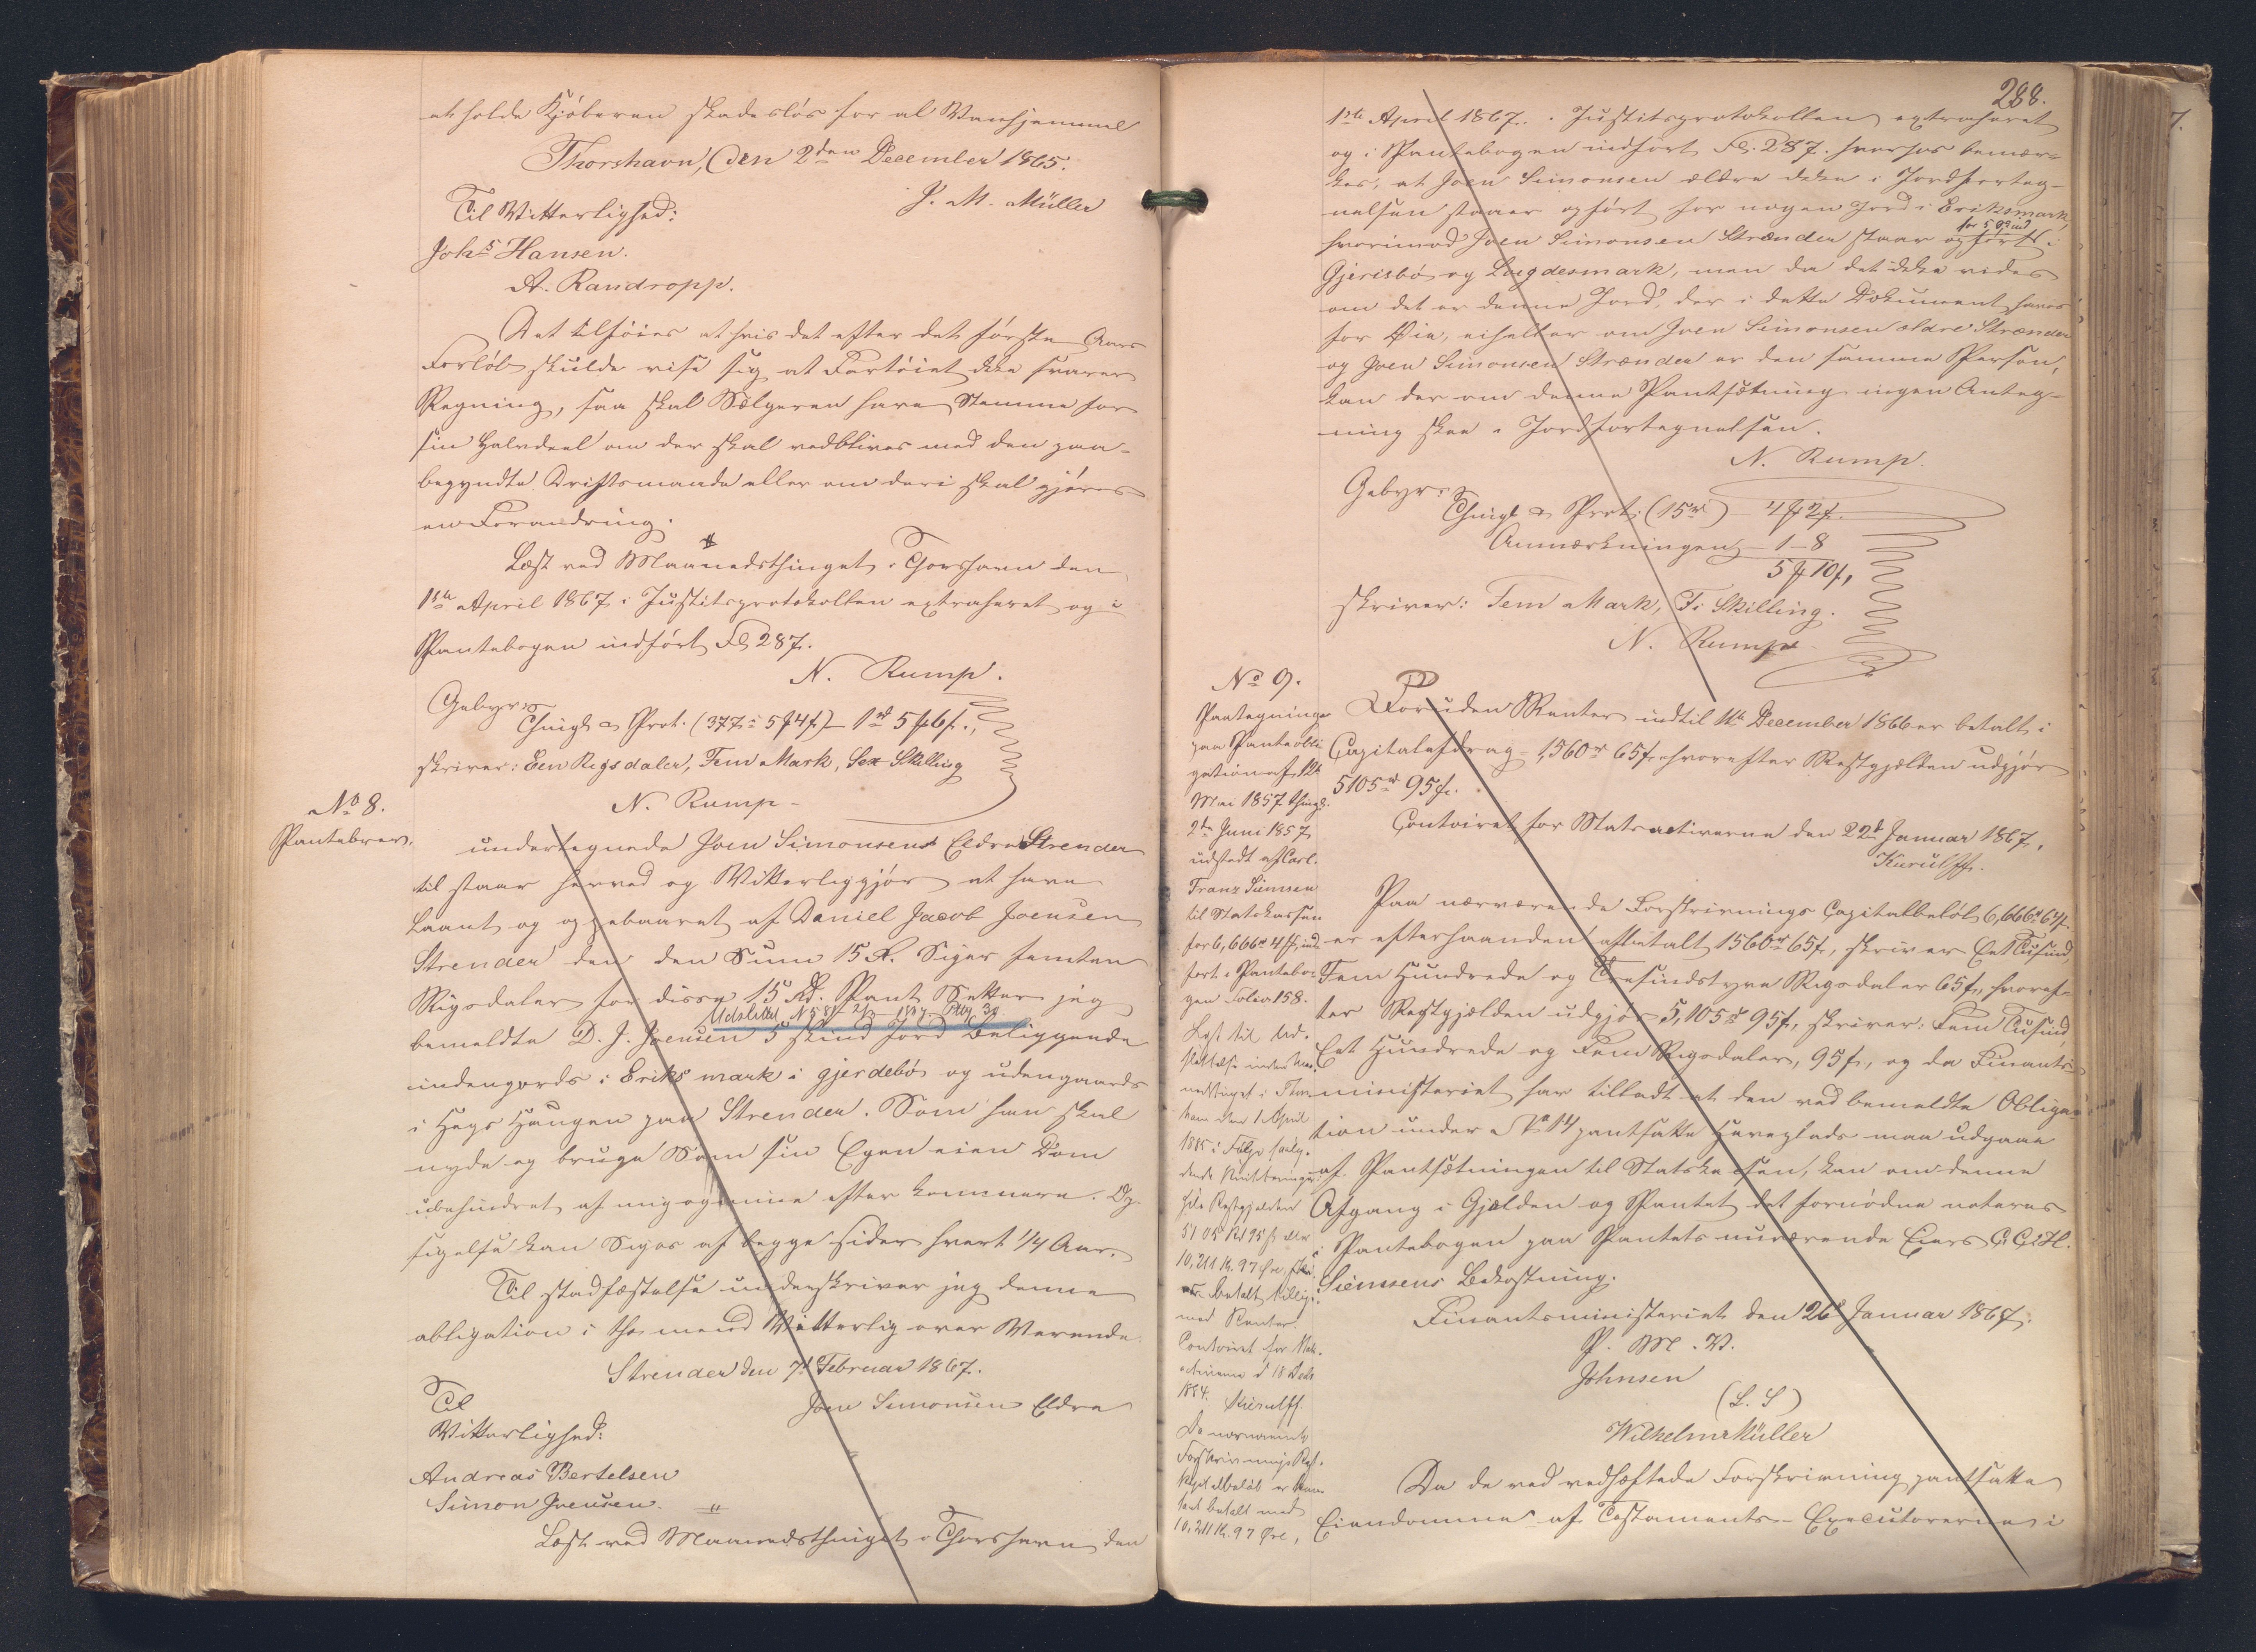 at holde Kjöberen skadeslös for al Vanhjemmel
Thorshavn, den 2den December 1865.
J. M. Müller
Til Vitterlighed:
Johs Hansen.
A. Randropp.
Det tilföies at hvis det efter det förste Aars
Forlöb skulde vise sig at Fartöiet ikke svarer
Regning, saa skal Sælgeren have Stemme for
sin Halvdeel om der skal vedblives med den paa-
begyndte Driftsmaade eller om deri skal gjöres
en Forandring.
Læst ved Maanedsthinget i Thorshavn den
1ste April 1867 i Justitsprotokollen extraheret og i
Pantebogen indfört Fol. 287.
N. Rump.
Gebyr:
Thingl. & Prot. (377 5 4) 1rd 5 6.
skriver: Een Rigsdaler, Fem Mark, Sex Skilling
N. Rump
No 8.
Pantebrev.
undertegnede Joen Simonsen Eldre Strender
til staar herved og Vitterliggjör at have
laant og oppebaaret af Daniel Jacob Joensen
Strender den Sum 15 R. Siger femten
Rigsdaler for disse 15 Rd. Pant Setter jeg
Udslettet
bemeldte D. J. Joensen 5 skind Jord beliggende
indengords i Eriks mark i gjerdebö og udengaards
i Hegs Haugen paa Strender. Som han skal
nyde og bruge Som sin Egen eien Dom
ubehindret af mig og mine efter kommere. Op
sigelse kan Siges af begge sider hvert 1/4 Aar.
Til stadfæstelse underskriver jeg denne
obligation i tho mend Vitterlig over Verende.
Strender den 7d Februar 1867.
Joen Simonsen Eldre
Til
Vitterlighed:
Andreas Bertelsen
Simon Joensen.
Læst ved Maanedsthinget i Thorshavn den
288.
1ste April 1867. i Justitsprotokollen extraheret
og i Pantebogen indfört Fol. 287. hvorhos bemær-
kes, at Joen Simonsen ældre ikke i Jordforteg-
nelsen staaer opfört for nogen Jord i Eriksmark,
hvorimod Joen Simonsen Strænder staar opfört for 5 Skind i
Gjerisbö og Lvigdesmark, men da det ikke vides
om det er denne Jord, der i dette Dokument haves
for Öie, eiheller om Joen Simonsen ældre Strænder
og Joen Simonsen Strænder er den samme Person,
kan der om denne Pantsætning ingen Anteg-
ning skee i Jordfortegnelsen.
N. Rump.
Gebyr:
Thingl. & Prot. (15rd) 4 2
Anmærkningen 1 - 8
5 10
skriver: Fem Mark, Ti Skilling.
N. Rump
No 9.
Paategninger
paa Panteobli-
gation af
Mai 1857 thingl.
2den Juni 1857
udstedt af Carl
Franz Siemsen
til Statskassen
for 6,666rd 4 ind-
fört i Pantebo-
gen Folio 158.
Læst til Ud-
slettelse
i Thors-
havn den 1 April
1885 i Følge
5105 Rd 95
10,211 Kr. 97 Øre
betalt
med Renter.
Contoiret for Stats-
activerne d. 18 Dcbr
1884.
Kierulff.
10,211 Kr. 97 Øre,
Foruden Renter indtil 11te December 1866 er betalt i
Capitalafdrag 1,560rd 65 hvorefter Restgjælden udgjör
5105rd 95.
Contoiret for Statsactiverne den 22d Januar 1867.
Kierulff.
Paa nærværende Forskrivnings Capitalbelöb 6,666rd 64
er efterhaanden afbetalt 1560rd 65, skriver Eet Tusind,
Fem Hundrede og Tresindstyve Rigsdaler 65, hvoref-
ter Restgjælden udgjör 5,105rd 95, skriver: Fem Tusind
Eet Hundrede og Fem Rigsdaler, 95, og da Finants-
ministeriet har tilladt at den ved bemeldte Obliga-
tion under No 14 pantsatte Haveplads maa udgaae
af Pantsætningen til Statskassen, kan om denne
Afgang i Gjælden og Pantet det fornödne noteres
i Pantebogen paa Pantets nuværende Eiers
Siemsens Bekostning.
Finantsministeriet den 26 Januar 1867.
P. M. V.
Johnsen
(L. S)
Wilhelm Müller
Da de ved vedhæftede Forskrivning pantsatte
Eiendomme af Testaments-Executorerne i